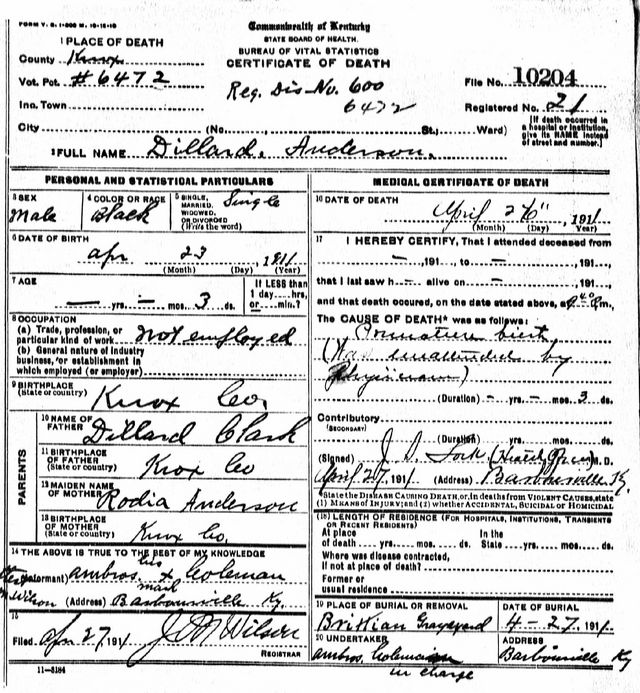 FORM V. S. 1-500 M. 10-15-10
Commonwealth of Kentucky
STATE BOARD OF HEALTH.
BUREAU OF VITAL STATISTICS
CERTIFICATE OF DEATH
1 PLACE OF DEATH
County Knox
Vot. Pct. #6472
Reg. Dis. No. 600
6472
File No. 10204
Inc. Town
Registered No. 21
City (No. St.; Ward)
[If death occurred in a hospital or institution, give its NAME instead of street and number.]
2 FULL NAME Dillard Anderson.
PERSONAL AND STATISTICAL PARTICULARS
3 SEX
Male
4 COLOR OR RACE
Black
5 SINGLE, MARRIED, WIDOWED, OR DIVORCED
(Write the word)
Single
6 DATE OF BIRTH
Apr 23, 1911
(Month) (Day) (Year)
7 AGE
— yrs. — mos. 3 ds.
If LESS than 1 day....hrs. or....min.?
8 OCCUPATION
(a) Trade, profession, or particular kind of work
not employed
(b) General nature of industry business, or establishment in which employed (or employer)
9 BIRTHPLACE
(State or country)
Knox Co,
PARENTS
10 NAME OF FATHER
Dillard Clark
11 BIRTHPLACE OF FATHER
(State or country)
Knox Co
12 MAIDEN NAME OF MOTHER
Rodia Anderson
13 BIRTHPLACE OF MOTHER
(State or country)
Knox Co.
14 THE ABOVE IS TRUE TO THE BEST OF MY KNOWLEDGE
(Informant) Ambros his x mark Coleman
Wilson
(Address) Barbourville Ky.
15
Filed Apr 27, 1911 J. D. M. Wilson
REGISTRAR
11-3184
MEDICAL CERTIFICATE OF DEATH
16 DATE OF DEATH
April 26", 1911
(Month) (Day) (Year)
17
I HEREBY CERTIFY, That I attended deceased from
—, 191 to —, 191
that I last saw h— alive on —, 191
and that death occured, on the date stated above, at m.
The CAUSE OF DEATH* was as follows:
Premature birth
(Was unattended by
Physician)
(Duration) — yrs. — mos. 3 ds.
Contributory
(SECONDARY)
(Duration) yrs. mos. ds.
(Signed) M. D.
April 27, 1911 (Address) Barbourville Ky.
*State the DISEASE CAUSING DEATH, or, in deaths from VIOLENT CAUSES, state (1) MEANS OF INJURY; and (2) whether ACCIDENTAL, SUICIDAL or HOMICIDAL
(18) LENGTH OF RESIDENCE (FOR HOSPITALS, INSTITUTIONS, TRANSIENTS OR RECENT RESIDENTS)
At place of death yrs. mos. ds.
In the State yrs. mos. ds.
Where was disease contracted, if not at place of death?
Former or usual residence
19 PLACE OF BURIAL OR REMOVAL
Brittian Graveyard
DATE OF BURIAL
4-27, 1911
20 UNDERTAKER
Ambros Coleman
in charge
ADDRESS
Barbourville Ky